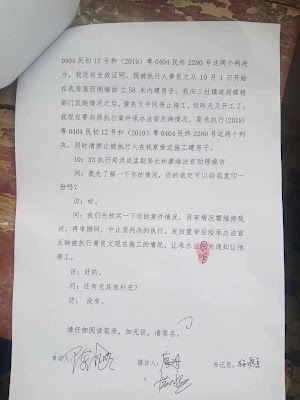 0404 民初 12 号和（2019）粤 0404 民终 2280 号这两个判决
书，我还有生效证明。我被执行人黄良文从 10 月 1 日开始
在我房屋西侧墙面 2.58 米内建房子。我向三灶镇政府城楼
部门反映情况之后，黄良文中间停止施工，但昨天又开工了。
我现在要向原执行案件承办法官反映情况，要求执行（2018）
粤 0404 民初 12 号和（2019）粤 0404 民终 2280 号这两个判
决，同时请禁止被执行人在我家旁边施工建房子。
10：33 执行局洪成孟副局长和廖海法官助理接访
问：我先了解一下你的情况，你的裁定可以给我复印一
份吗？
访：好。
问：我们先核实一下你的案件情况，再审情况需维持现
状，再审期间，中止原判决的执行，发回重审后给承办法官
反映被执行黄良文现在施工的情况，让承办法
发通知让他
停工。
访：好的。
问：还有无其他补充？
访：没有。
请仔细阅读笔录，如无误，请签名。
来访人：
接访人：
书记员：
2